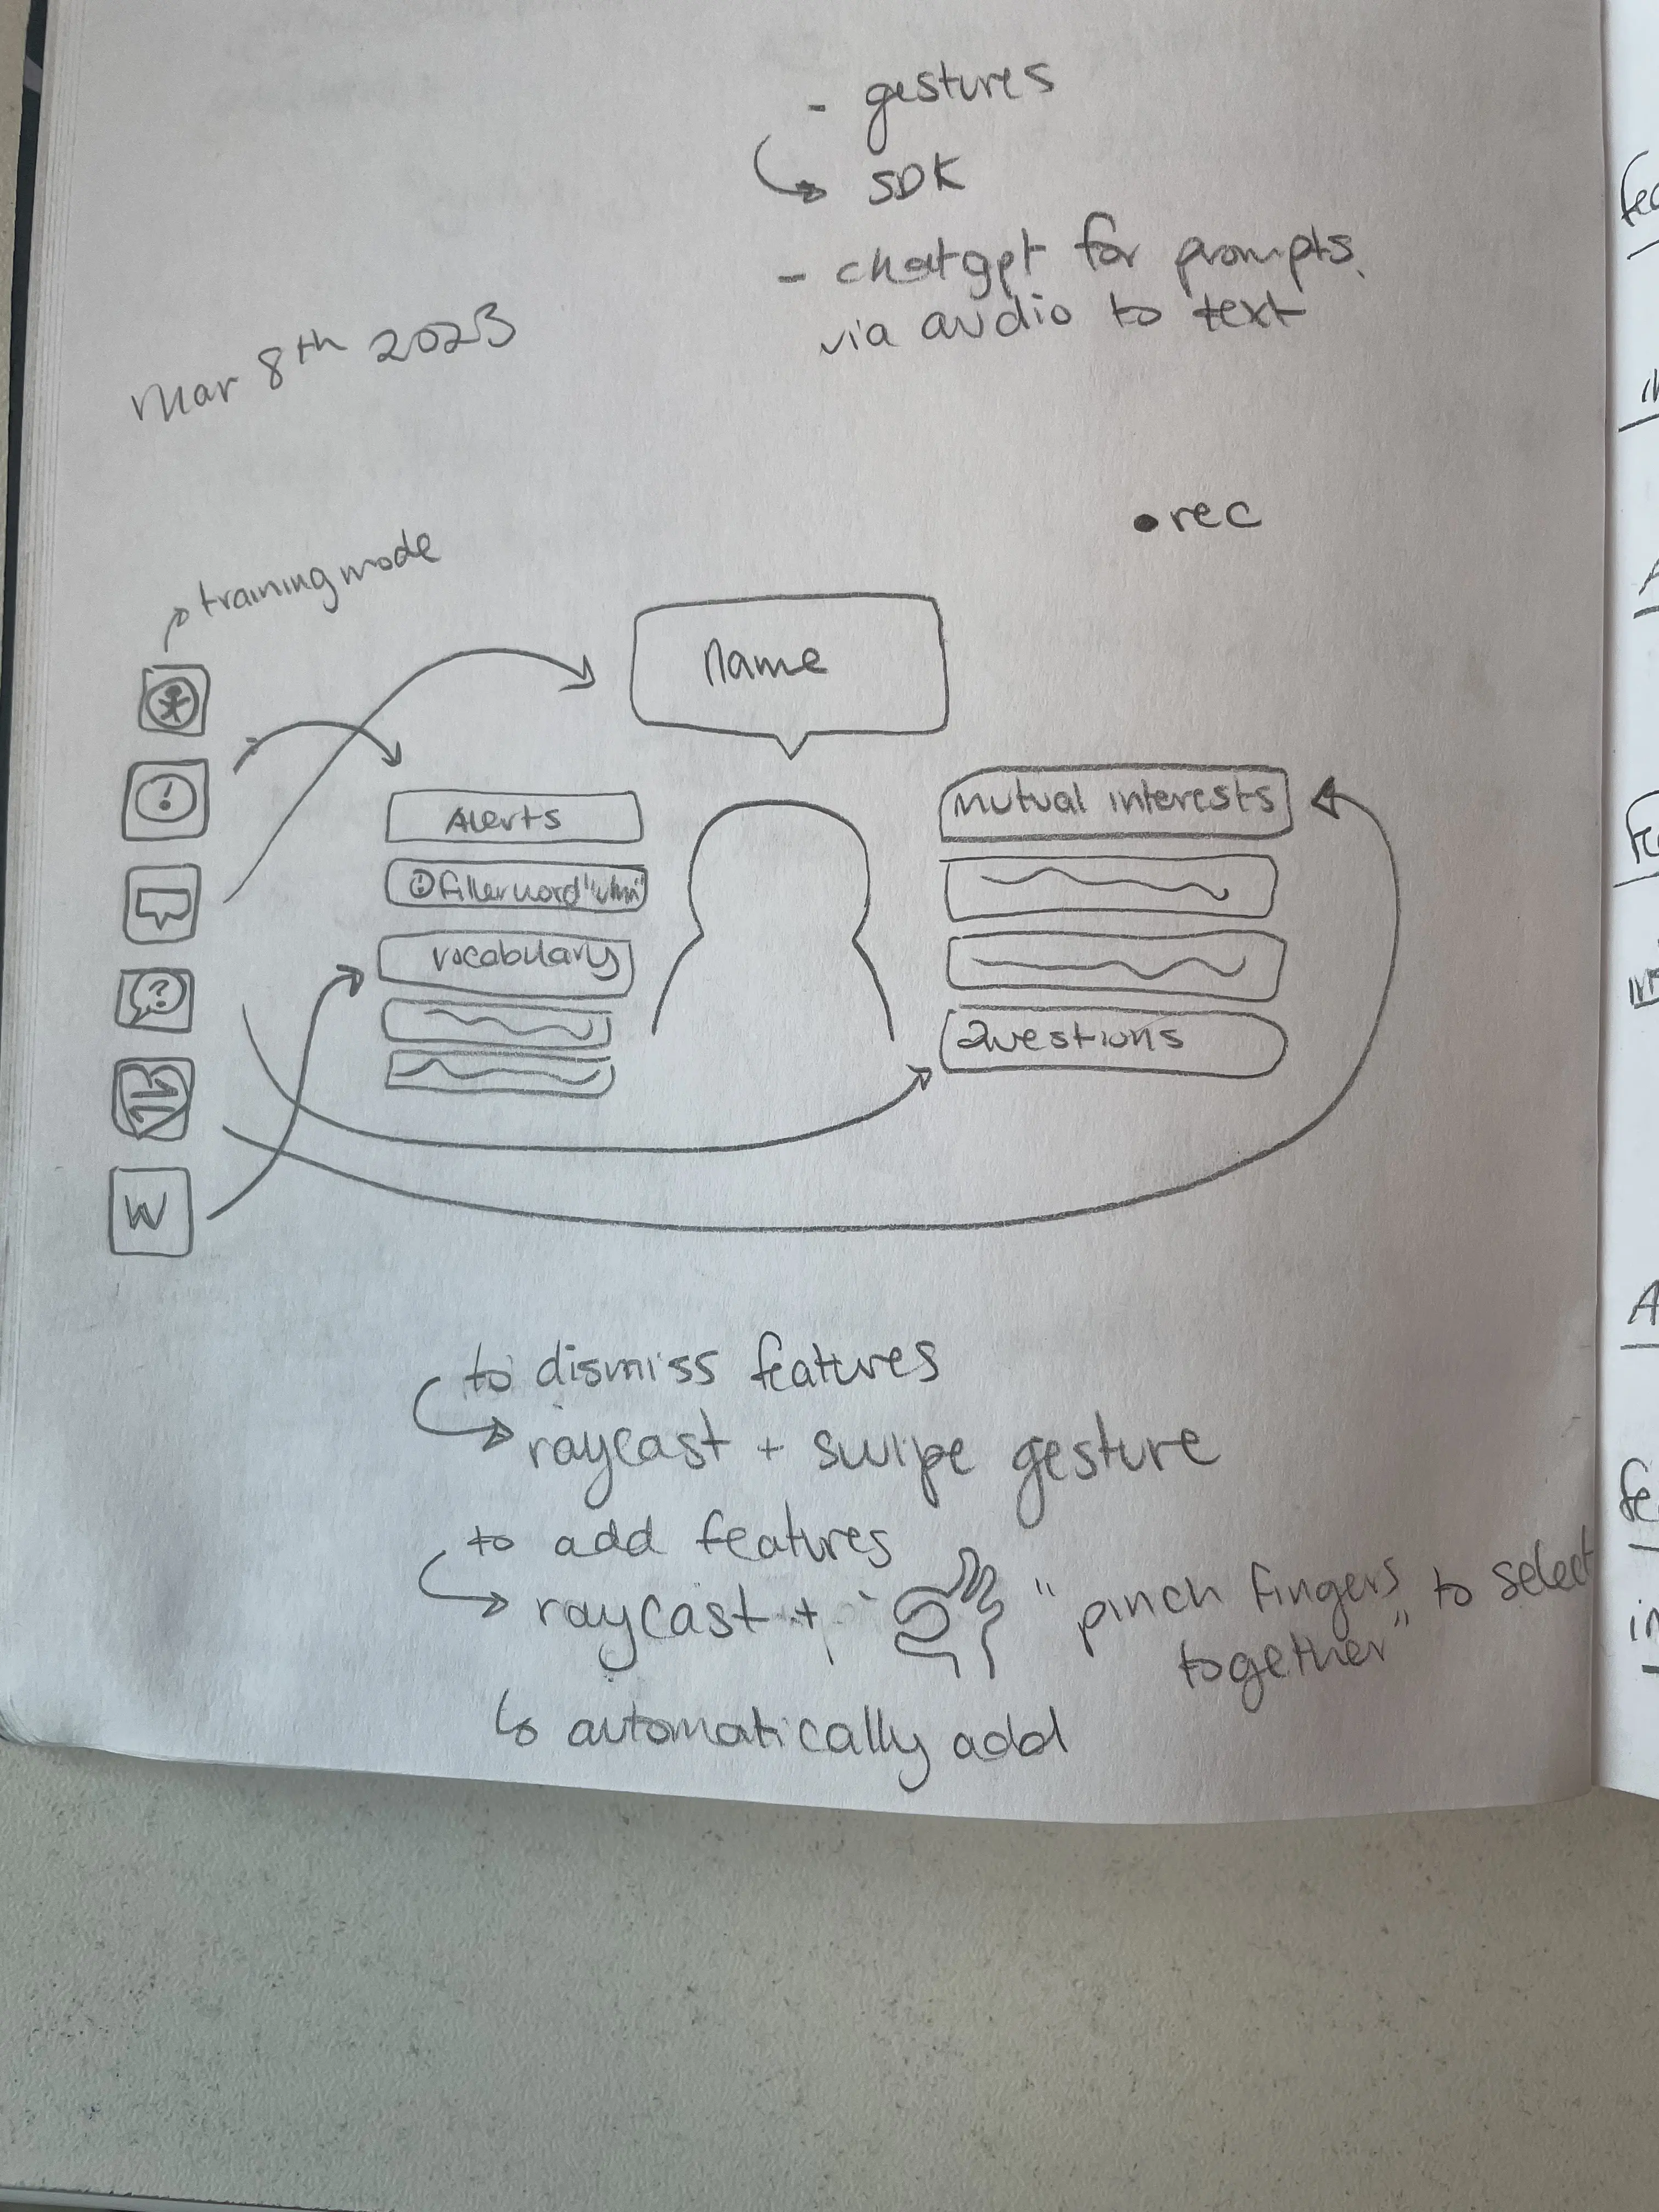 - gestures
SDK
- chatgpt for prompts
via audio to text
Mar 8th 2023
• rec
training mode
name
!
Alerts
! Filler word "uhm"
vocabulary
?
W
mutual interests
Questions
to dismiss features
raycast + swipe gesture
to add features
raycast + "pinch fingers together" to select
automatically add